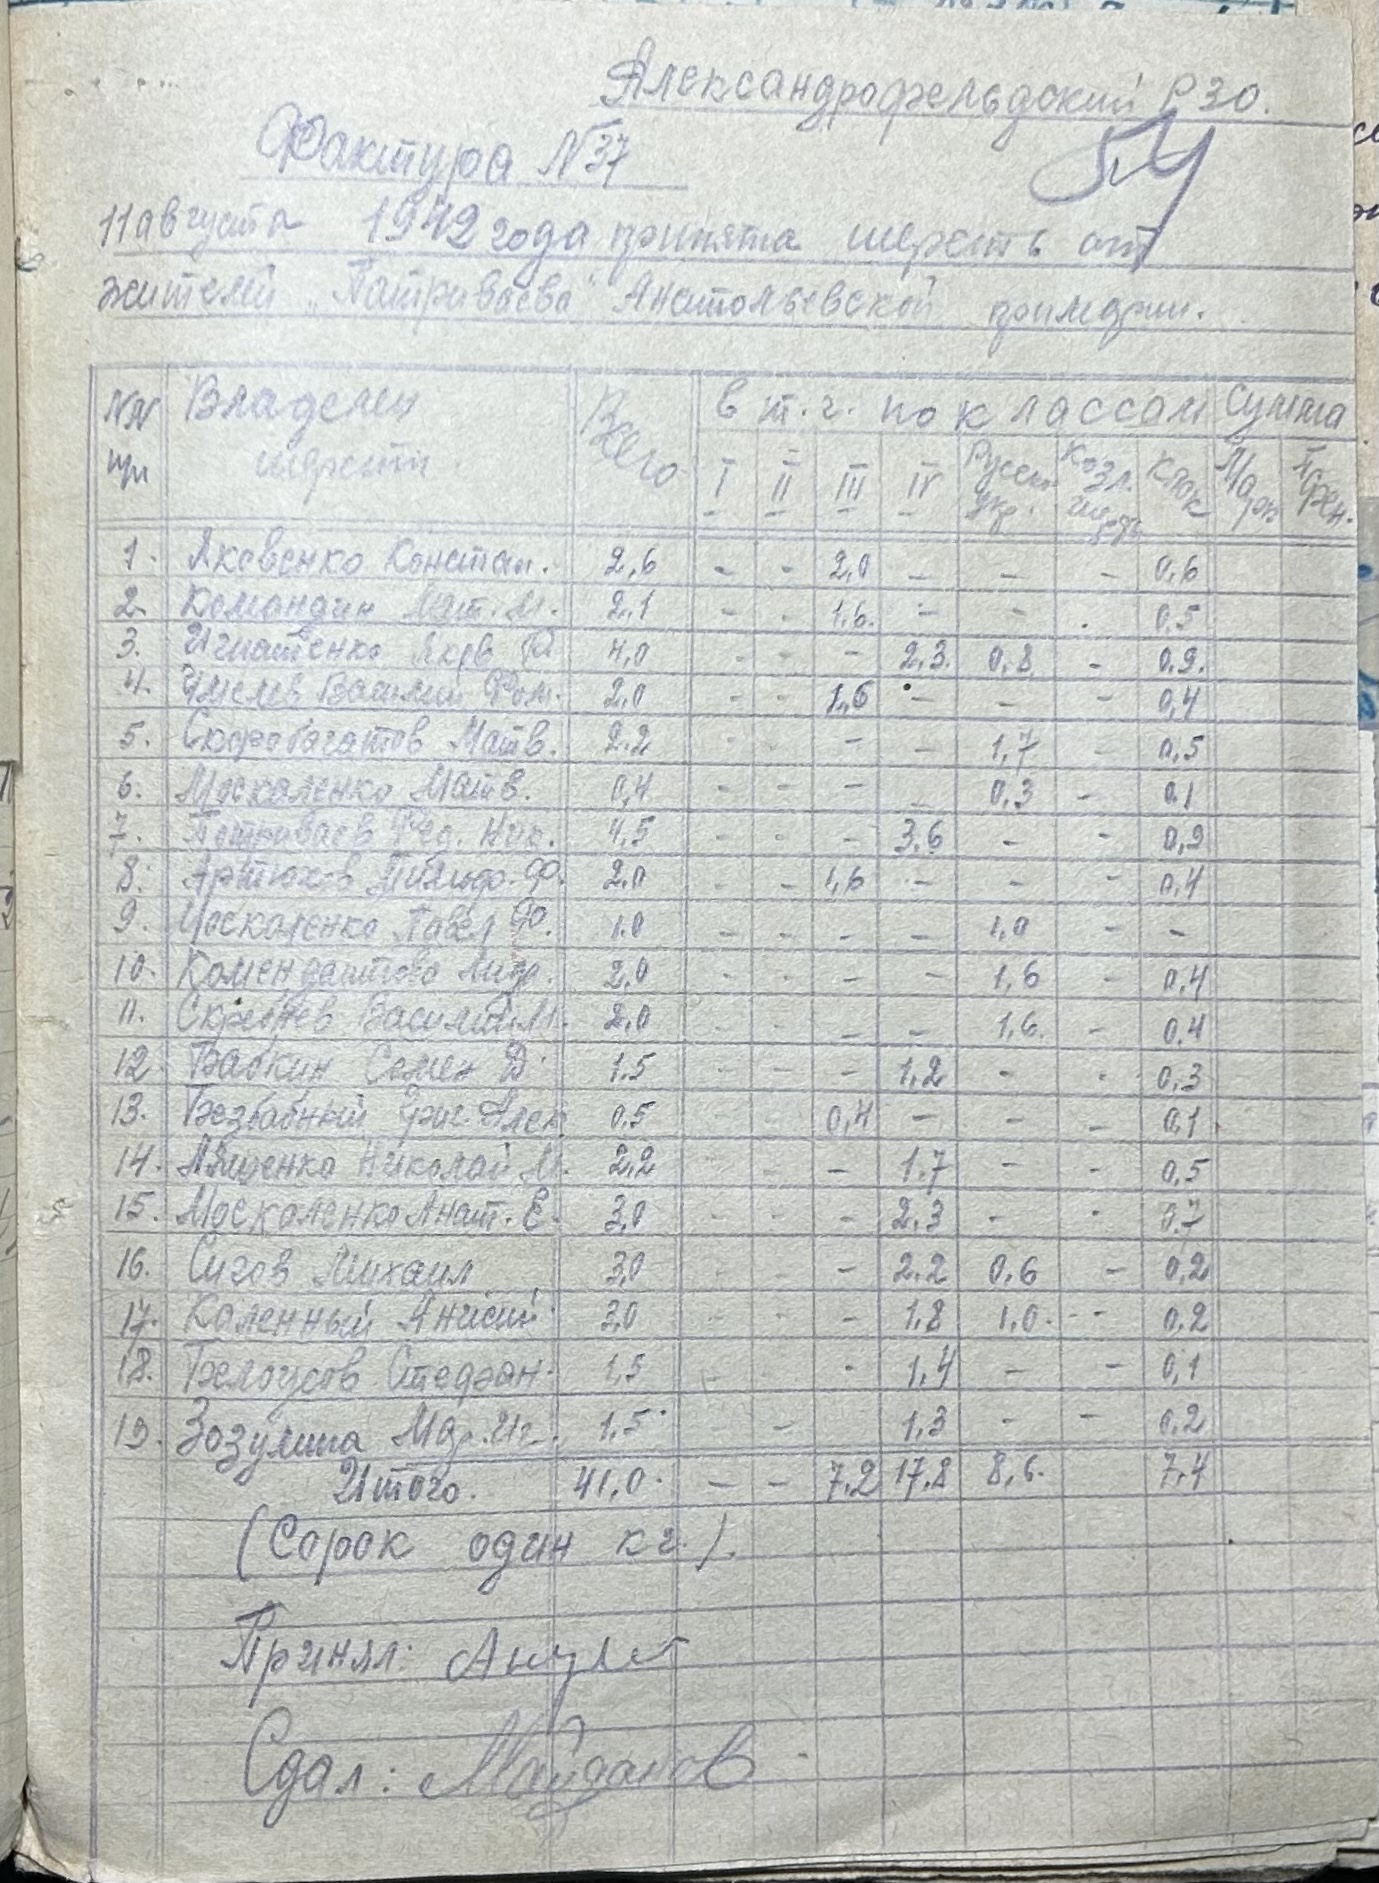 Александрофельдский РЗО.
54
Фактура N37
11 августа 1942 года принята шерсть от
жителей „Патриваева" Анатольевской примарии.
NN пп Владелец шерсти. Всего в т.ч. по классам Сумма
I II III IV Русск. укр. Козл. шерсть Клок Марк Пфен.
1. Яковенко Констан. 2,6 - - 2,0 - - - 0,6
2. Командин Мит. М. 2,1 - - 1,6. - - . 0,5
3. Игнатенко Яков Ф. 4,0 - - - 2,3. 0,8 - 0,9.
4. Чмелев Василий Фом. 2,0 - - 1,6 - - - 0,4
5. Скоробогатов Матв. 2,2 - - - - 1,7 - 0,5
6. Москаленко Матв. 0,4 - - - - 0,3 - 0,1
7. Патриваев Фед. Ник. 4,5 - - - 3,6 - - 0,9
8. Артюхов Ф. 2,0 - - 1,6 - - - 0,4
9. Москаленко Павел Ф. 1,0 - - - - 1,0 - -
10. Комендантова 2,0 - - - - 1,6 - 0,4
11. Василий М. 2,0 - - - - 1,6. - 0,4
12. Бабкин Семен Д. 1,5 - - - 1,2 - - 0,3
13. Безбабный Григ. Алек. 0,5 - - 0,4 - - - 0,1
14. Ляшенко Николай М. 2,2 - - - 1,7 - - 0,5
15. Москаленко Анат. Е. 3,0 - - - 2,3 - - 0,7
16. Сигов Михаил 3,0 - - - 2,2 0,6 - 0,2
17. Каленный Анисий 3,0 - - - 1,8 1,0. - 0,2
18. Белоусов Стефан. 1,5 - - - 1,4 - - 0,1
19. Зозулина Мар. Иг. 1,5 - 1,3 - - 0,2
Итого. 41,0. - - 7,2 17,8 8,6. 7,4
(Сорок один кг.).
Принял:
Сдал: Майданов